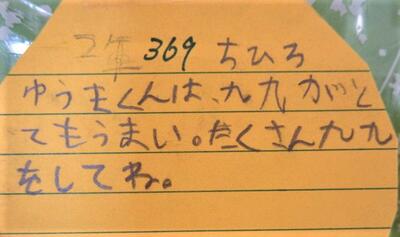 2年 369 ちひろ
ゆうまくんは、九九がと
てもうまい。たくさん九九
をしてね。